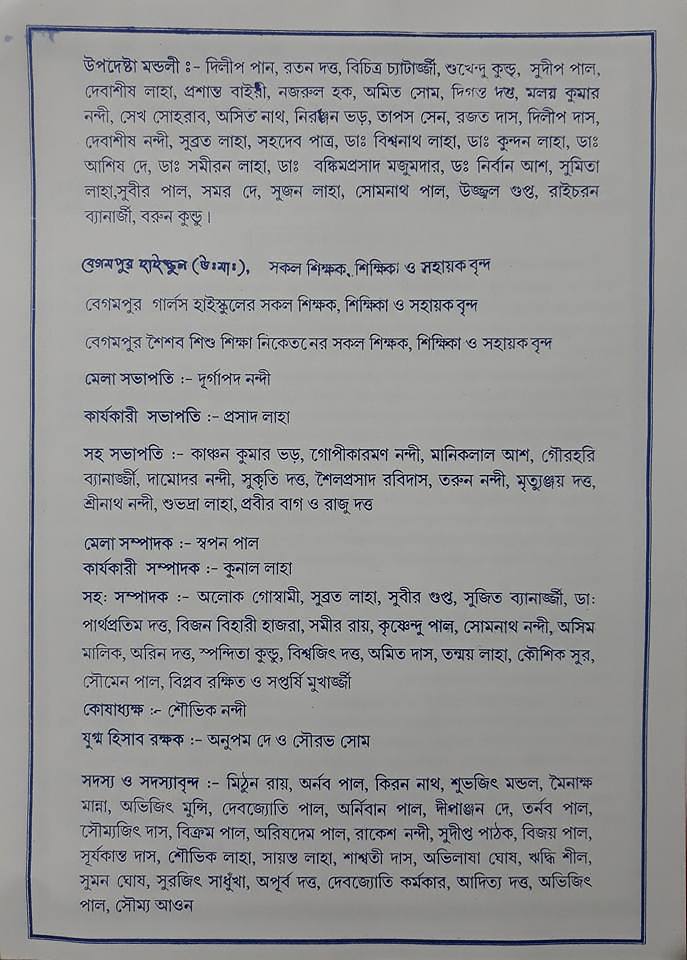 উপদেষ্টা মন্ডলী ঃ- দিলীপ পান, রতন দত্ত, বিচিত্র চ্যাটার্জ্জী, শুখেন্দু কুন্ডু, সুদীপ পাল,
দেবাশীষ লাহা, প্রশান্ত বাইরী, নজরুল হক, অমিত সোম, দিগন্ত দত্ত, মলয় কুমার
নন্দী, সেখ সোহরাব, অসিত নাথ, নিরঞ্জন ভড়, তাপস সেন, রজত দাস, দিলীপ দাস,
দেবাশীষ নন্দী, সুব্রত লাহা, সহদেব পাত্র, ডাঃ বিশ্বনাথ লাহা, ডাঃ কুন্দন লাহা, ডাঃ
আশিষ দে, ডাঃ সমীরন লাহা, ডাঃ বঙ্কিমপ্রসাদ মজুমদার, ডঃ নির্বান আশ, সুমিতা
লাহা,সুবীর পাল, সমর দে, সুজন লাহা, সোমনাথ পাল, উজ্জ্বল গুপ্ত, রাইচরন
ব্যানার্জী, বরুন কুন্ডু।
বেগমপুর হাইস্কুল (উঃমাঃ), সকল শিক্ষক, শিক্ষিকা ও সহায়ক বৃন্দ
বেগমপুর গার্লস হাইস্কুলের সকল শিক্ষক, শিক্ষিকা ও সহায়ক বৃন্দ
বেগমপুর শৈশব শিশু শিক্ষা নিকেতনের সকল শিক্ষক, শিক্ষিকা ও সহায়ক বৃন্দ
মেলা সভাপতি :- দূর্গাপদ নন্দী
কার্যকারী সভাপতি :- প্রসাদ লাহা
সহ সভাপতি :- কাঞ্চন কুমার ভড়, গোপীকারমণ নন্দী, মানিকলাল আশ, গৌরহরি
ব্যানার্জ্জী, দামোদর নন্দী, সুকৃতি দত্ত, শৈলপ্রসাদ রবিদাস, তরুন নন্দী, মৃত্যুঞ্জয় দত্ত,
শ্রীনাথ নন্দী, শুভদ্রা লাহা, প্রবীর বাগ ও রাজু দত্ত
মেলা সম্পাদক :- স্বপন পাল
কার্যকারী সম্পাদক :- কুনাল লাহা
সহ: সম্পাদক :- অলোক গোস্বামী, সুব্রত লাহা, সুবীর গুপ্ত, সুজিত ব্যানার্জ্জী, ডা:
পার্থপ্রতিম দত্ত, বিজন বিহারী হাজরা, সমীর রায়, কৃষ্ণেন্দু পাল, সোমনাথ নন্দী, অসিম
মালিক, অরিন দত্ত, স্পন্দিতা কুন্ডু, বিশ্বজিৎ দত্ত, অমিত দাস, তন্ময় লাহা, কৌশিক সুর,
সৌমেন পাল, বিপ্লব রক্ষিত ও সপ্তর্ষি মুখার্জ্জী
কোষাধ্যক্ষ :- শৌভিক নন্দী
যুগ্ম হিসাব রক্ষক :- অনুপম দে ও সৌরভ সোম
সদস্য ও সদস্যাবৃন্দ :- মিঠুন রায়, অর্নব পাল, কিরন নাথ, শুভজিৎ মন্ডল, মৈনাক্ষ
মান্না, অভিজিৎ মুন্সি, দেবজ্যোতি পাল, অর্নিবান পাল, দীপাঞ্জন দে, তর্নব পাল,
সৌম্যজিৎ দাস, বিক্রম পাল, অরিষদেম পাল, রাকেশ নন্দী, সুদীপ্ত পাঠক, বিজয় পাল,
সূর্যকান্ত দাস, শৌভিক লাহা, সায়ন্ত লাহা, শাশ্বতী দাস, অভিলাষা ঘোষ, ঋদ্ধি শীল,
সুমন ঘোষ, সুরজিৎ সাধুঁখা, অপূর্ব দত্ত, দেবজ্যোতি কর্মকার, আদিত্য দত্ত, অভিজিৎ
পাল, সৌম্য আওন